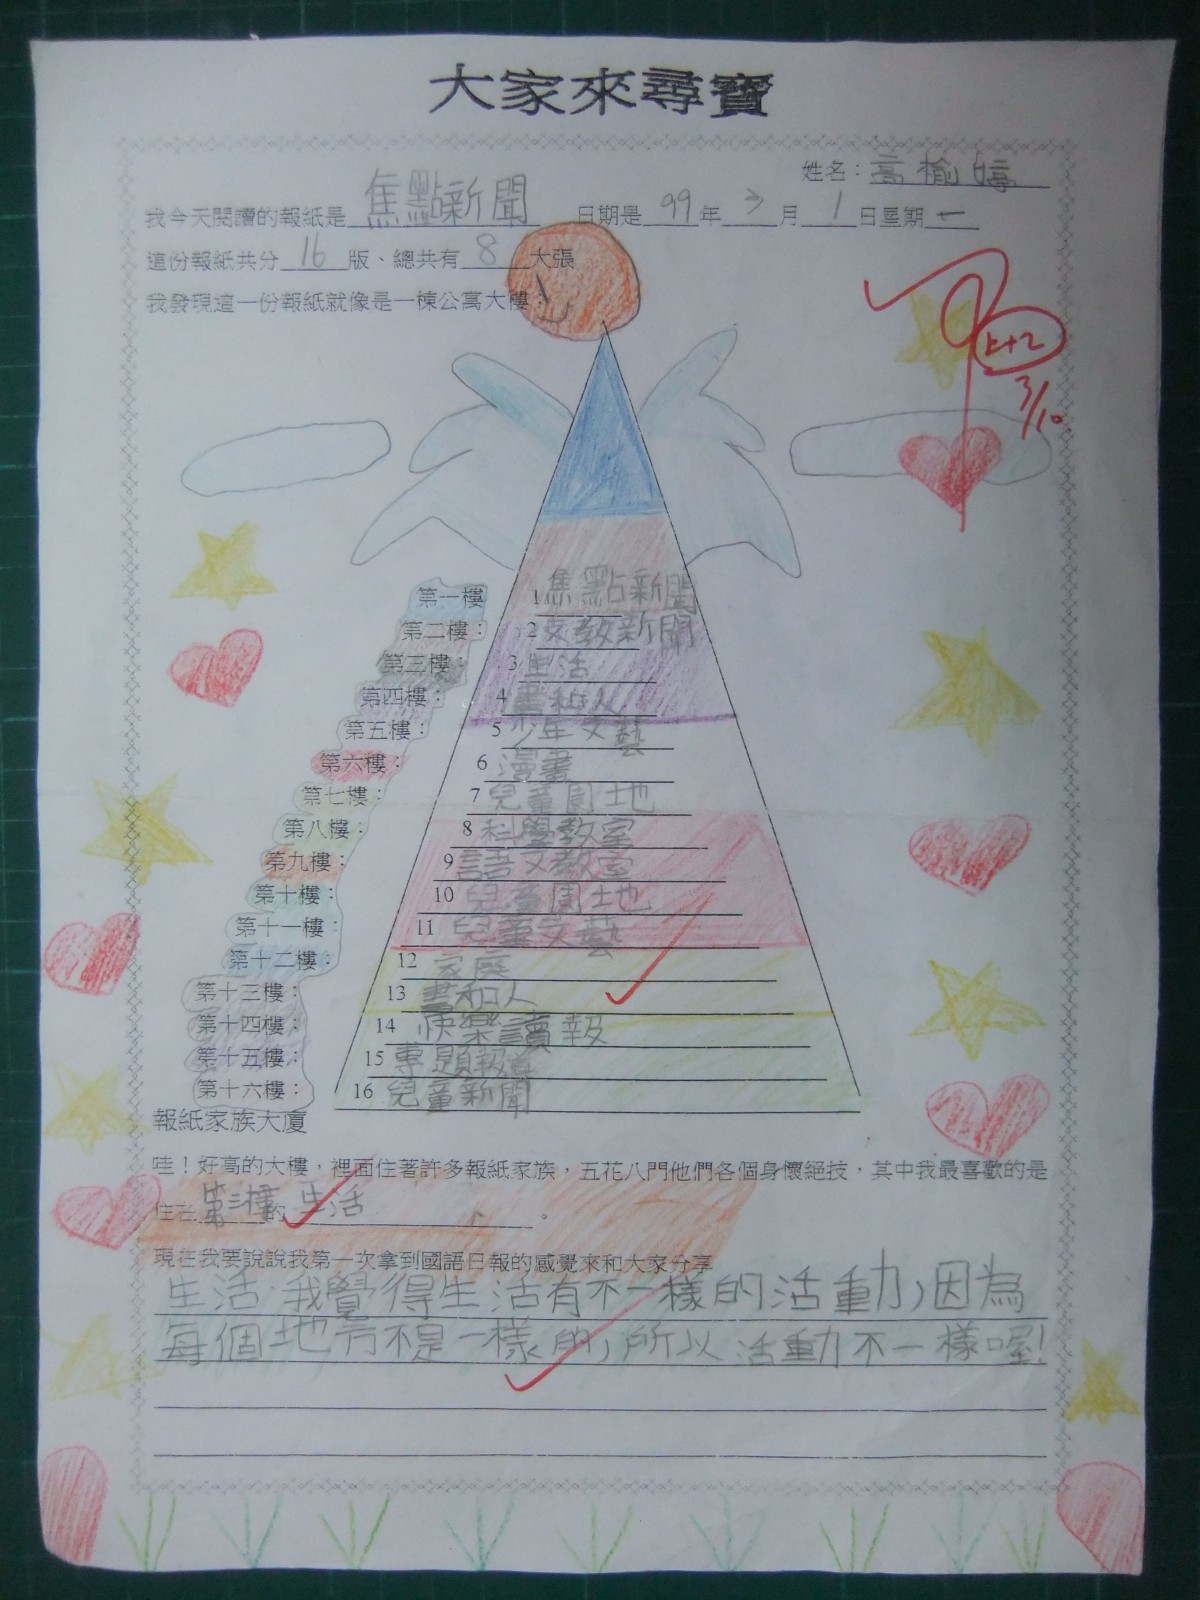 大家來尋寶
姓名：高榆婷
我今天閱讀的報紙是焦點新聞 日期是99年3月1日星期一
這份報紙共分16版、總共有8大張
我發現這一份報紙就像是一棟公寓大樓：
上+2
3/10.
第一樓 1焦點新聞
第二樓： 2文教新聞
第三樓： 3生活
第四樓： 4書和人
第五樓： 5少年文藝
第六樓： 6漫畫
第七樓： 7兒童園地
第八樓： 8科學教室
第九樓： 9語文教室
第十樓： 10兒童園地
第十一樓： 11兒童文藝
第十二樓： 12家庭
第十三樓： 13書和人
第十四樓： 14快樂讀報
第十五樓： 15專題報導
第十六樓： 16兒童新聞
報紙家族大廈
哇！好高的大樓，裡面住著許多報紙家族，五花八門他們各個身懷絕技，其中我最喜歡的是
住在第三樓的生活。
現在我要說說我第一次拿到國語日報的感覺來和大家分享
生活，我覺得生活有不一樣的活動，因為
每個地方不是一樣的，所以活動不一樣喔！